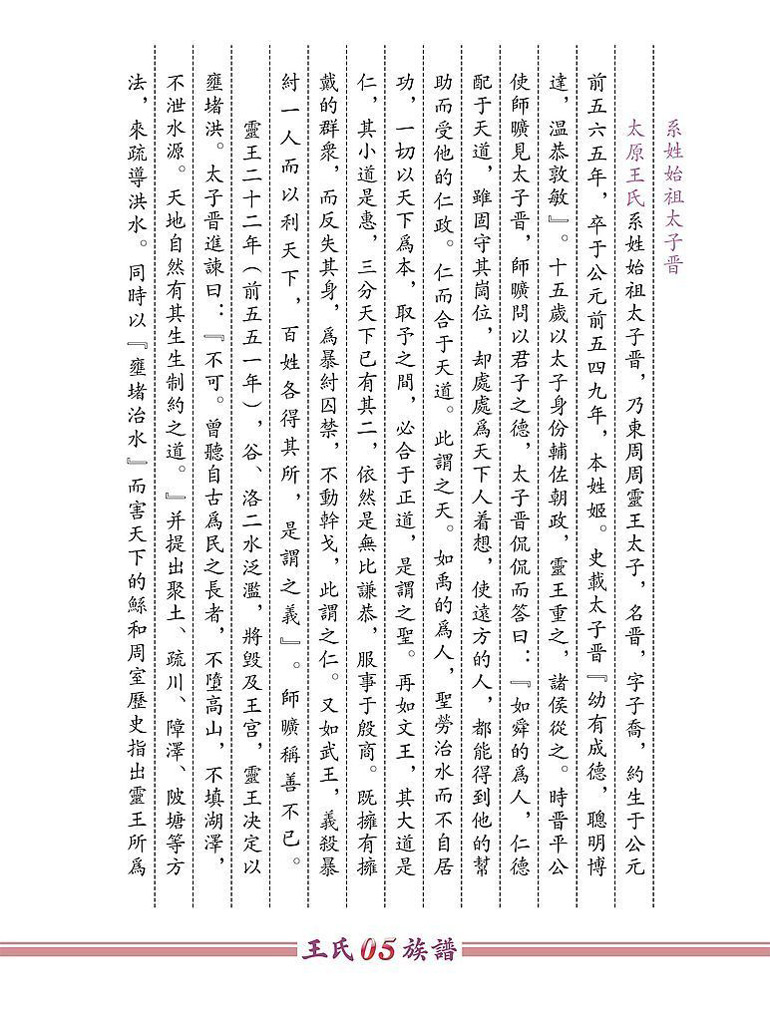 系姓始祖太子晋
太原王氏系姓始祖太子晋，乃東周周靈王太子，名晋，字子喬，約生于公元
前五六五年，卒于公元前五四九年，本姓姬。史載太子晋『幼有成德，聰明博
達，温恭敦敏』。十五歲以太子身份輔佐朝政，靈王重之，諸侯從之。時晋平公
使師曠見太子晋，師曠問以君子之德，太子晋侃侃而答曰：『如舜的爲人，仁德
配于天道，雖固守其崗位，却處處爲天下人着想，使遠方的人，都能得到他的幫
助而受他的仁政。仁而合于天道。此謂之天。如禹的爲人，聖勞治水而不自居
功，一切以天下爲本，取予之間，必合于正道，是謂之聖。再如文王，其大道是
仁，其小道是惠，三分天下已有其二，依然是無比謙恭，服事于殷商。既擁有擁
戴的群衆，而反失其身，爲暴紂囚禁，不動幹戈，此謂之仁。又如武王，義殺暴
紂一人而以利天下，百姓各得其所，是謂之義』。師曠稱善不已。
靈王二十二年（前五五一年），谷、洛二水泛濫，將毀及王宫，靈王决定以
壅堵洪。太子晋進諫曰：『不可。曾聽自古爲民之長者，不墮高山，不填湖澤，
不泄水源。天地自然有其生生制約之道。』并提出聚土、疏川、障澤、陂塘等方
法，來疏導洪水。同時以『壅堵治水』而害天下的鯀和周室歷史指出靈王所爲
王氏05族譜